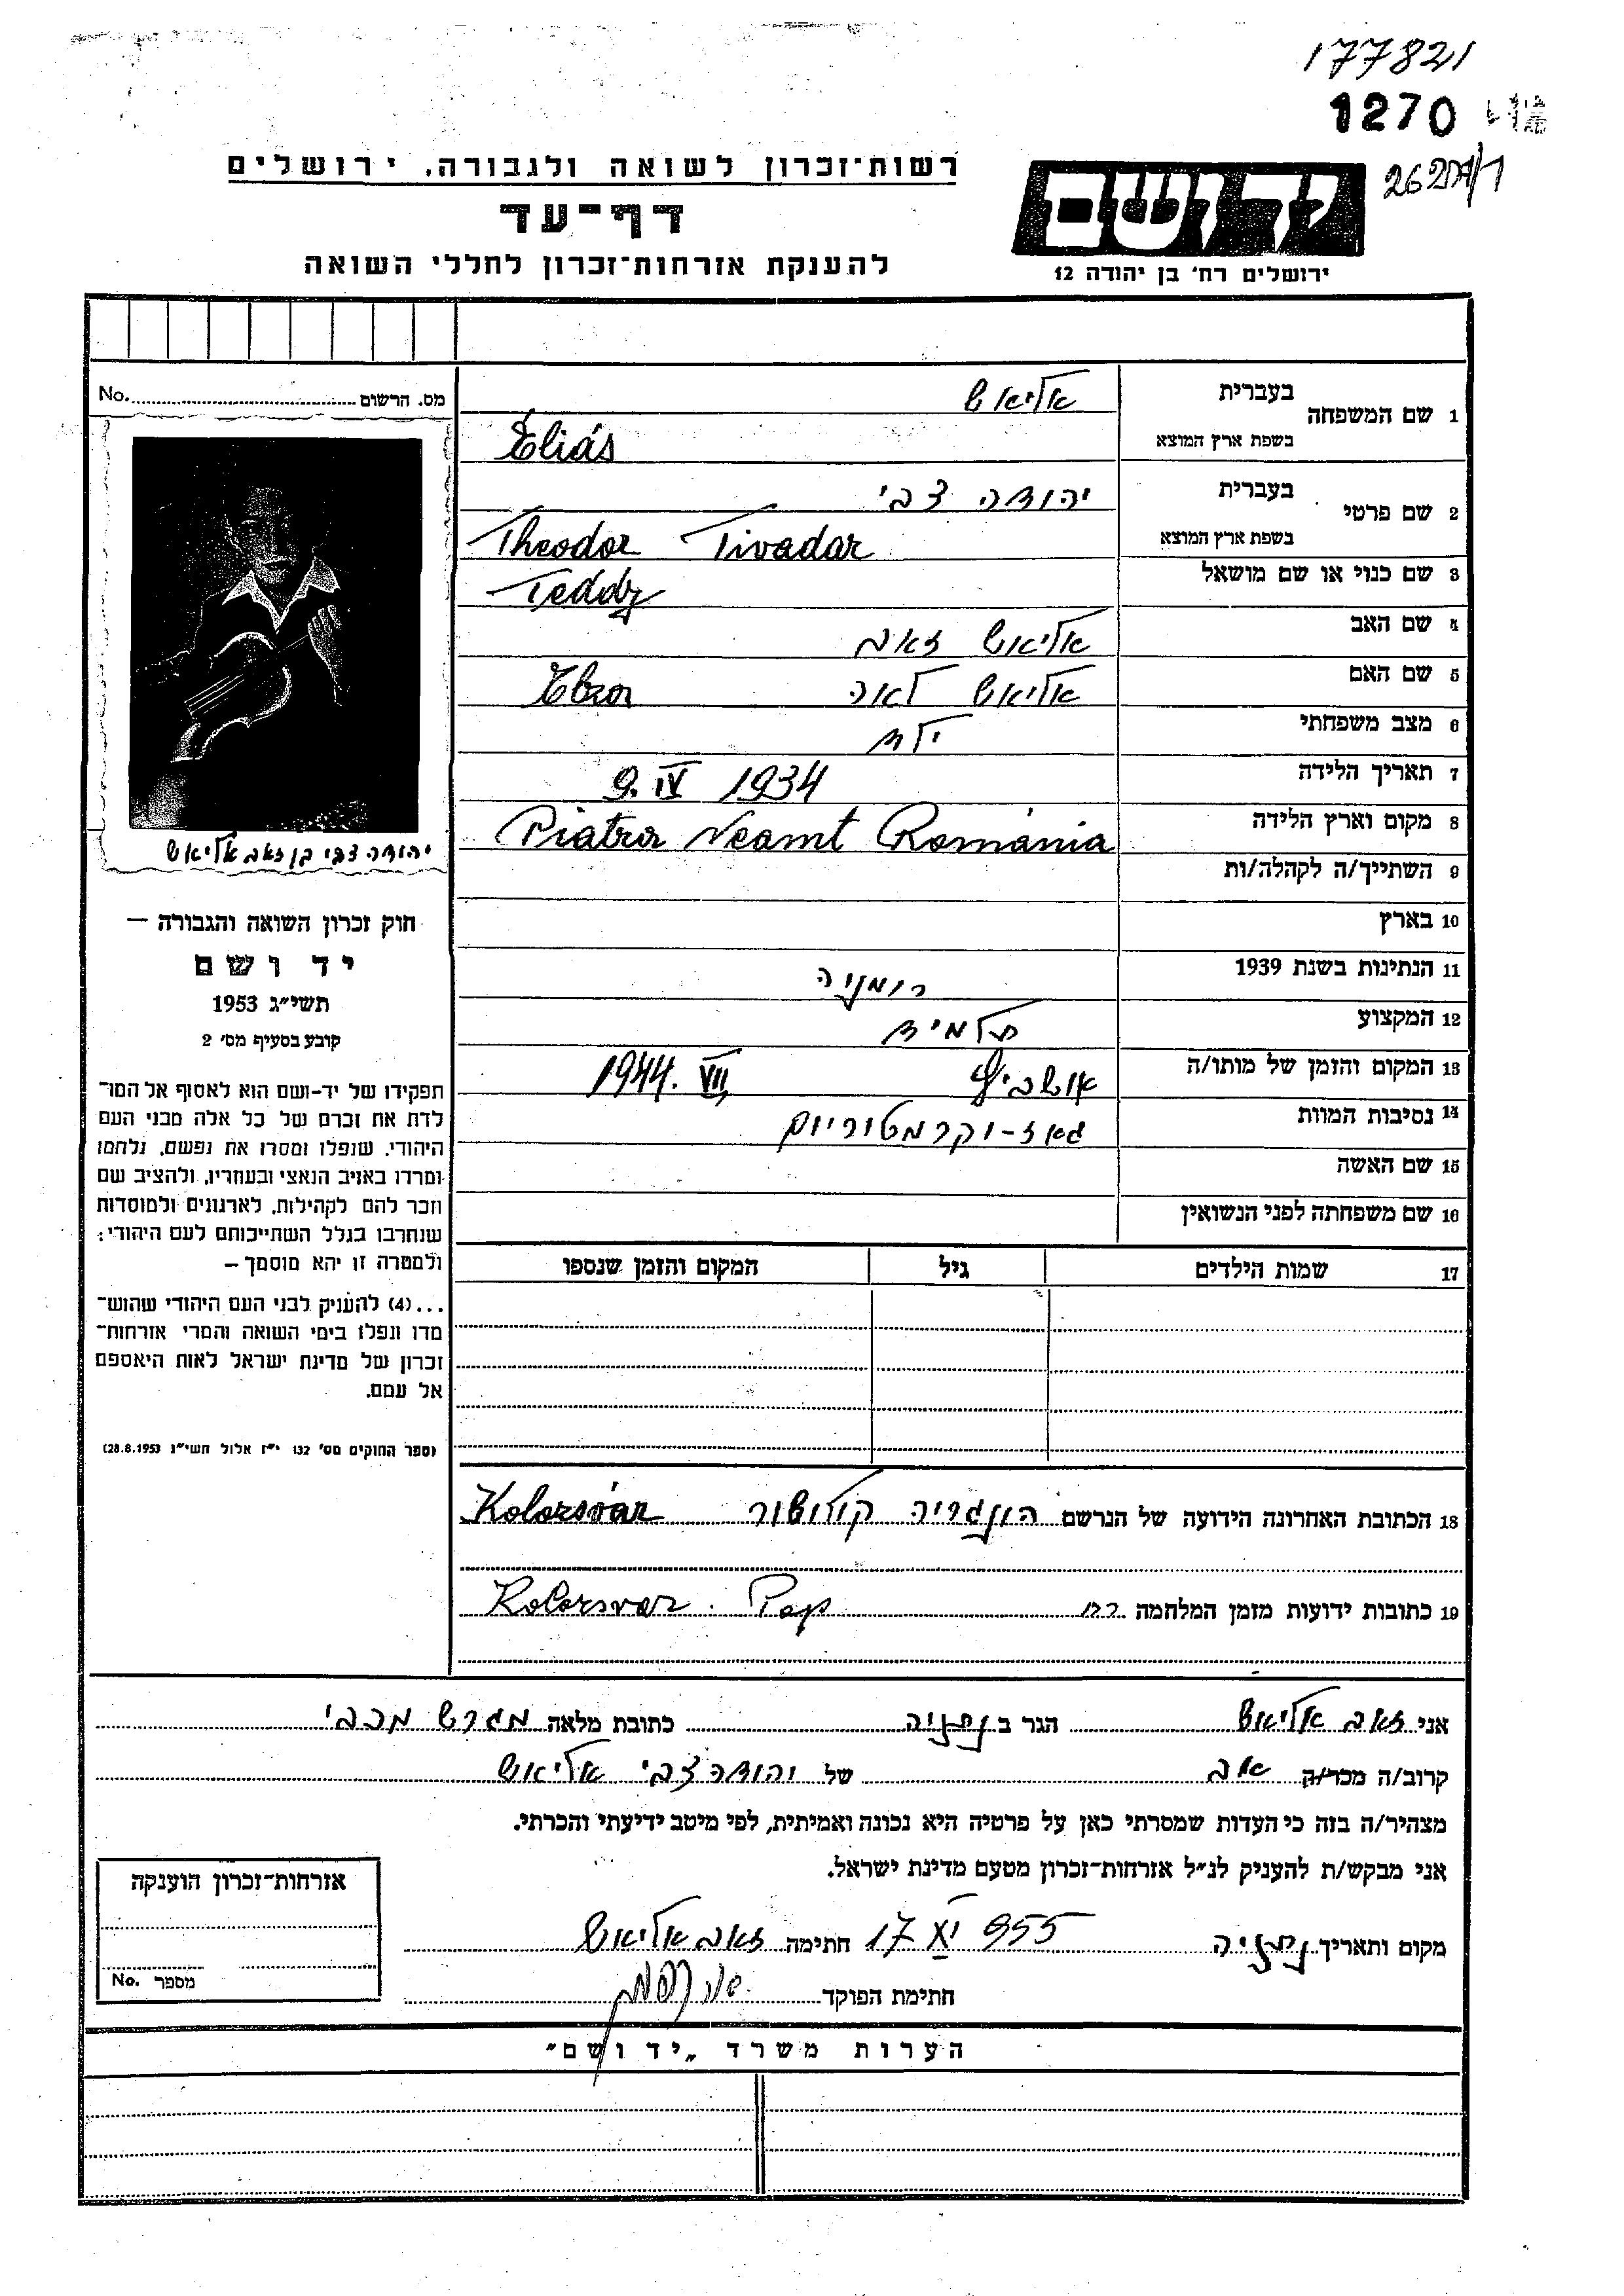 177821
1270
רשות־זכרון לשואה ולגבורה, ירושלים
דף־עד
להענקת אזרחות־זכרון לחללי השואה
יד ושם
ירושלים רח׳ בן יהודה 12
1 שם המשפחה
בעברית אליאש
בשפת ארץ המוצא Eliás
2 שם פרטי
בעברית יהודה צבי
בשפת ארץ המוצא Theodor Tivadar
3 שם כנוי או שם מושאל Teddy
4 שם האב אליאש זאב
5 שם האם אליאש לאה
6 מצב משפחתי ילד
7 תאריך הלידה 9. IV 1934
8 מקום וארץ הלידה Piatra Neamt Románia
9 השתייך/ה לקהלה/ות
10 בארץ
11 הנתינות בשנת 1939 רומניה
12 המקצוע תלמיד
13 המקום והזמן של מותו/ה אושביץ 1944. VII
14 נסיבות המוות גאז-וקרמטוריום
15 שם האשה
16 שם משפחתה לפני הנשואין
17 שמות הילדים גיל המקום והזמן שנספו
18 הכתובת האחרונה הידועה של הנרשם הונגריה קולושוור Kolozsvár
19 כתובות ידועות מזמן המלחמה Kolozsvar. Pap
מס. הרשום No.
יהודה צבי בן זאב אליאש
חוק זכרון השואה והגבורה —
יד ושם
תשי״ג 1953
קובע בסעיף מס׳ 2
תפקידו של יד-ושם הוא לאסוף אל המו־
לדת את זכרם של כל אלה מבני העם
היהודי, שנפלו ומסרו את נפשם, נלחמו
ומרדו באויב הנאצי ובעוזריו, ולהציב שם
וזכר להם לקהילות, לארגונים ולמוסדות
שנחרבו בגלל השתייכותם לעם היהודי;
ולמטרה זו יהא מוסמך –
...(4) להעניק לבני העם היהודי שהוש־
מדו ונפלו בימי השואה והמרי אזרחות־
זכרון של מדינת ישראל לאות היאספם
אל עמם.
(ספר החוקים מס׳ 132 י״ז אלול תשי״ג 28.8.1953)
אני זאב אליאש הגר ב נתניה כתובת מלאה מגרש מכבי
קרוב/ה מכר/ה אב של יהודה צבי אליאש
מצהיר/ה בזה כי העדות שמסרתי כאן על פרטיה היא נכונה ואמיתית, לפי מיטב ידיעתי והכרתי.
אני מבקש/ת להעניק לנ״ל אזרחות-זכרון מטעם מדינת ישראל.
מקום ותאריך נתניה 17 XI 955 חתימה זאב אליאש
חתימת הפוקד
אזרחות־זכרון הוענקה
מספר No.
הערות משרד „יד ושם״